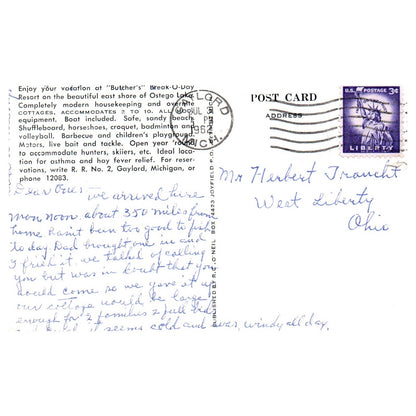 Enjoy your vacation at "Butcher's" Break-O-Day
Resort on the beautiful east share of Ostego Lake.
Completely modern housekeeping and overnite
COTTAGES, ACCOMMODATES 2 TO 10. All boat
equipment. Boat included. Safe, sandy beach.
Shuffleboard, horseshoes, croquet, badminton and
volleyball. Barbecue and children's playground.
Motors, live bait and tackle. Open year 'round
to accommodate hunters, skiers, etc. Ideal loca-
tion for asthma and hay fever relief. For reser-
vations, write R. R. No. 2, Gaylord, Michigan, or
phone 12083.
Dear Ones
we arrived here
mon noon. about 350 miles from
home Hasn't been too good to fish
to day. Dad brought one in and
I fried it. we talked of calling
you but was in doubt that you
would come so we gave it up
our cottage would be large
enough for 2 families 2 full bed
it seems cold and
windy all day.
PUBLISHED BY R. C. O'NEIL BOX 4423 JOYFIELD
GAYLORD
PM
1962
MICH.
POST CARD
ADDRESS
U.S. POSTAGE 3¢
LIBERTY
Mr Herbert Traucht
West Liberty
Ohio